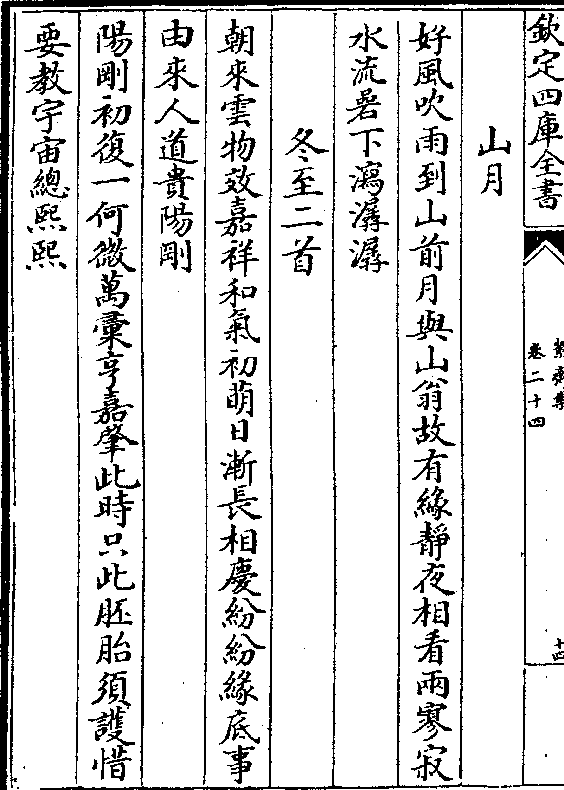 欽定四庫全書
絜齋集
卷二十四
十四
山月
好風吹雨到山前月與山翁故有緣靜夜相看兩寥寂
水流碁下瀉潺潺
冬至二首
朝來雲物效嘉祥和氣初萌日漸長相慶紛紛緣底事
由來人道貴陽剛
陽剛初復一何微萬彚亨嘉肇此時只此胚胎須護惜
要教宇宙總熙熙